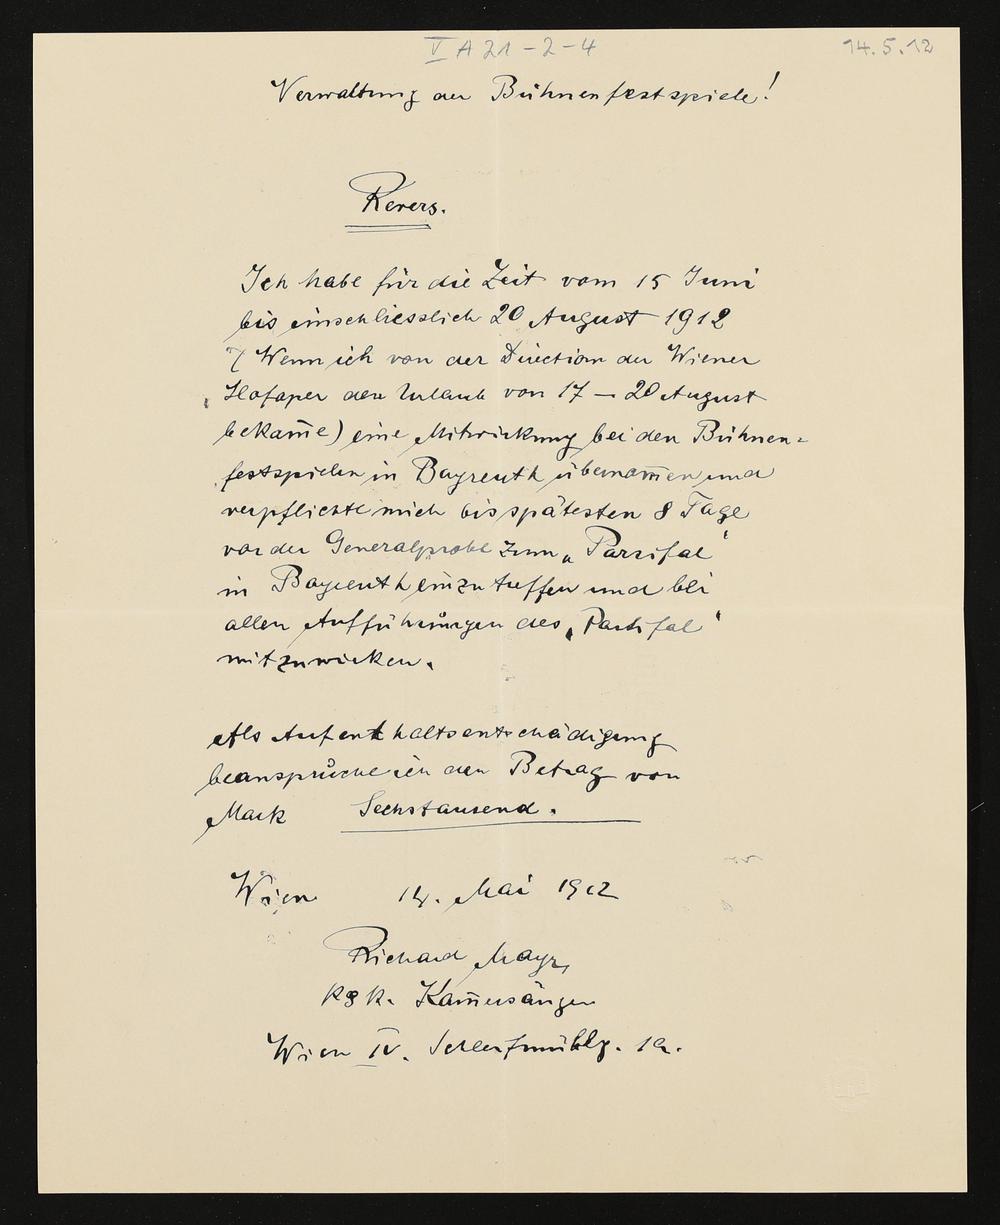 V A 21-2-4
14.5.12
Verwaltung der Bühnenfestspiele!
Revers.
Ich habe für die Zeit vom 15 Juni
bis einschliesslich 20 August 1912
(Wenn ich von der Direction der Wiener
Hofoper den Urlaub von 17 – 20 August
bekam̅e) eine Mitwirkung bei den Bühnen=
festspielen in Bayreuth übernom̅en und
verpflichte mich bis spätesten 8 Tage
vor der Generalprobe zum „Parsifal"
in Bayreuth einzutreffen und bei
allen Aufführungen des „Parsifal"
mitzuwirken.
Als Aufenthaltsentschädigung
beanspruche ich den Betrag von
Mark Sechstausend.
Wien 14. Mai 1912
Richard Mayr,
k & k. Kam̅ersänger
Wien IV. Schleifmühlg. 1a.